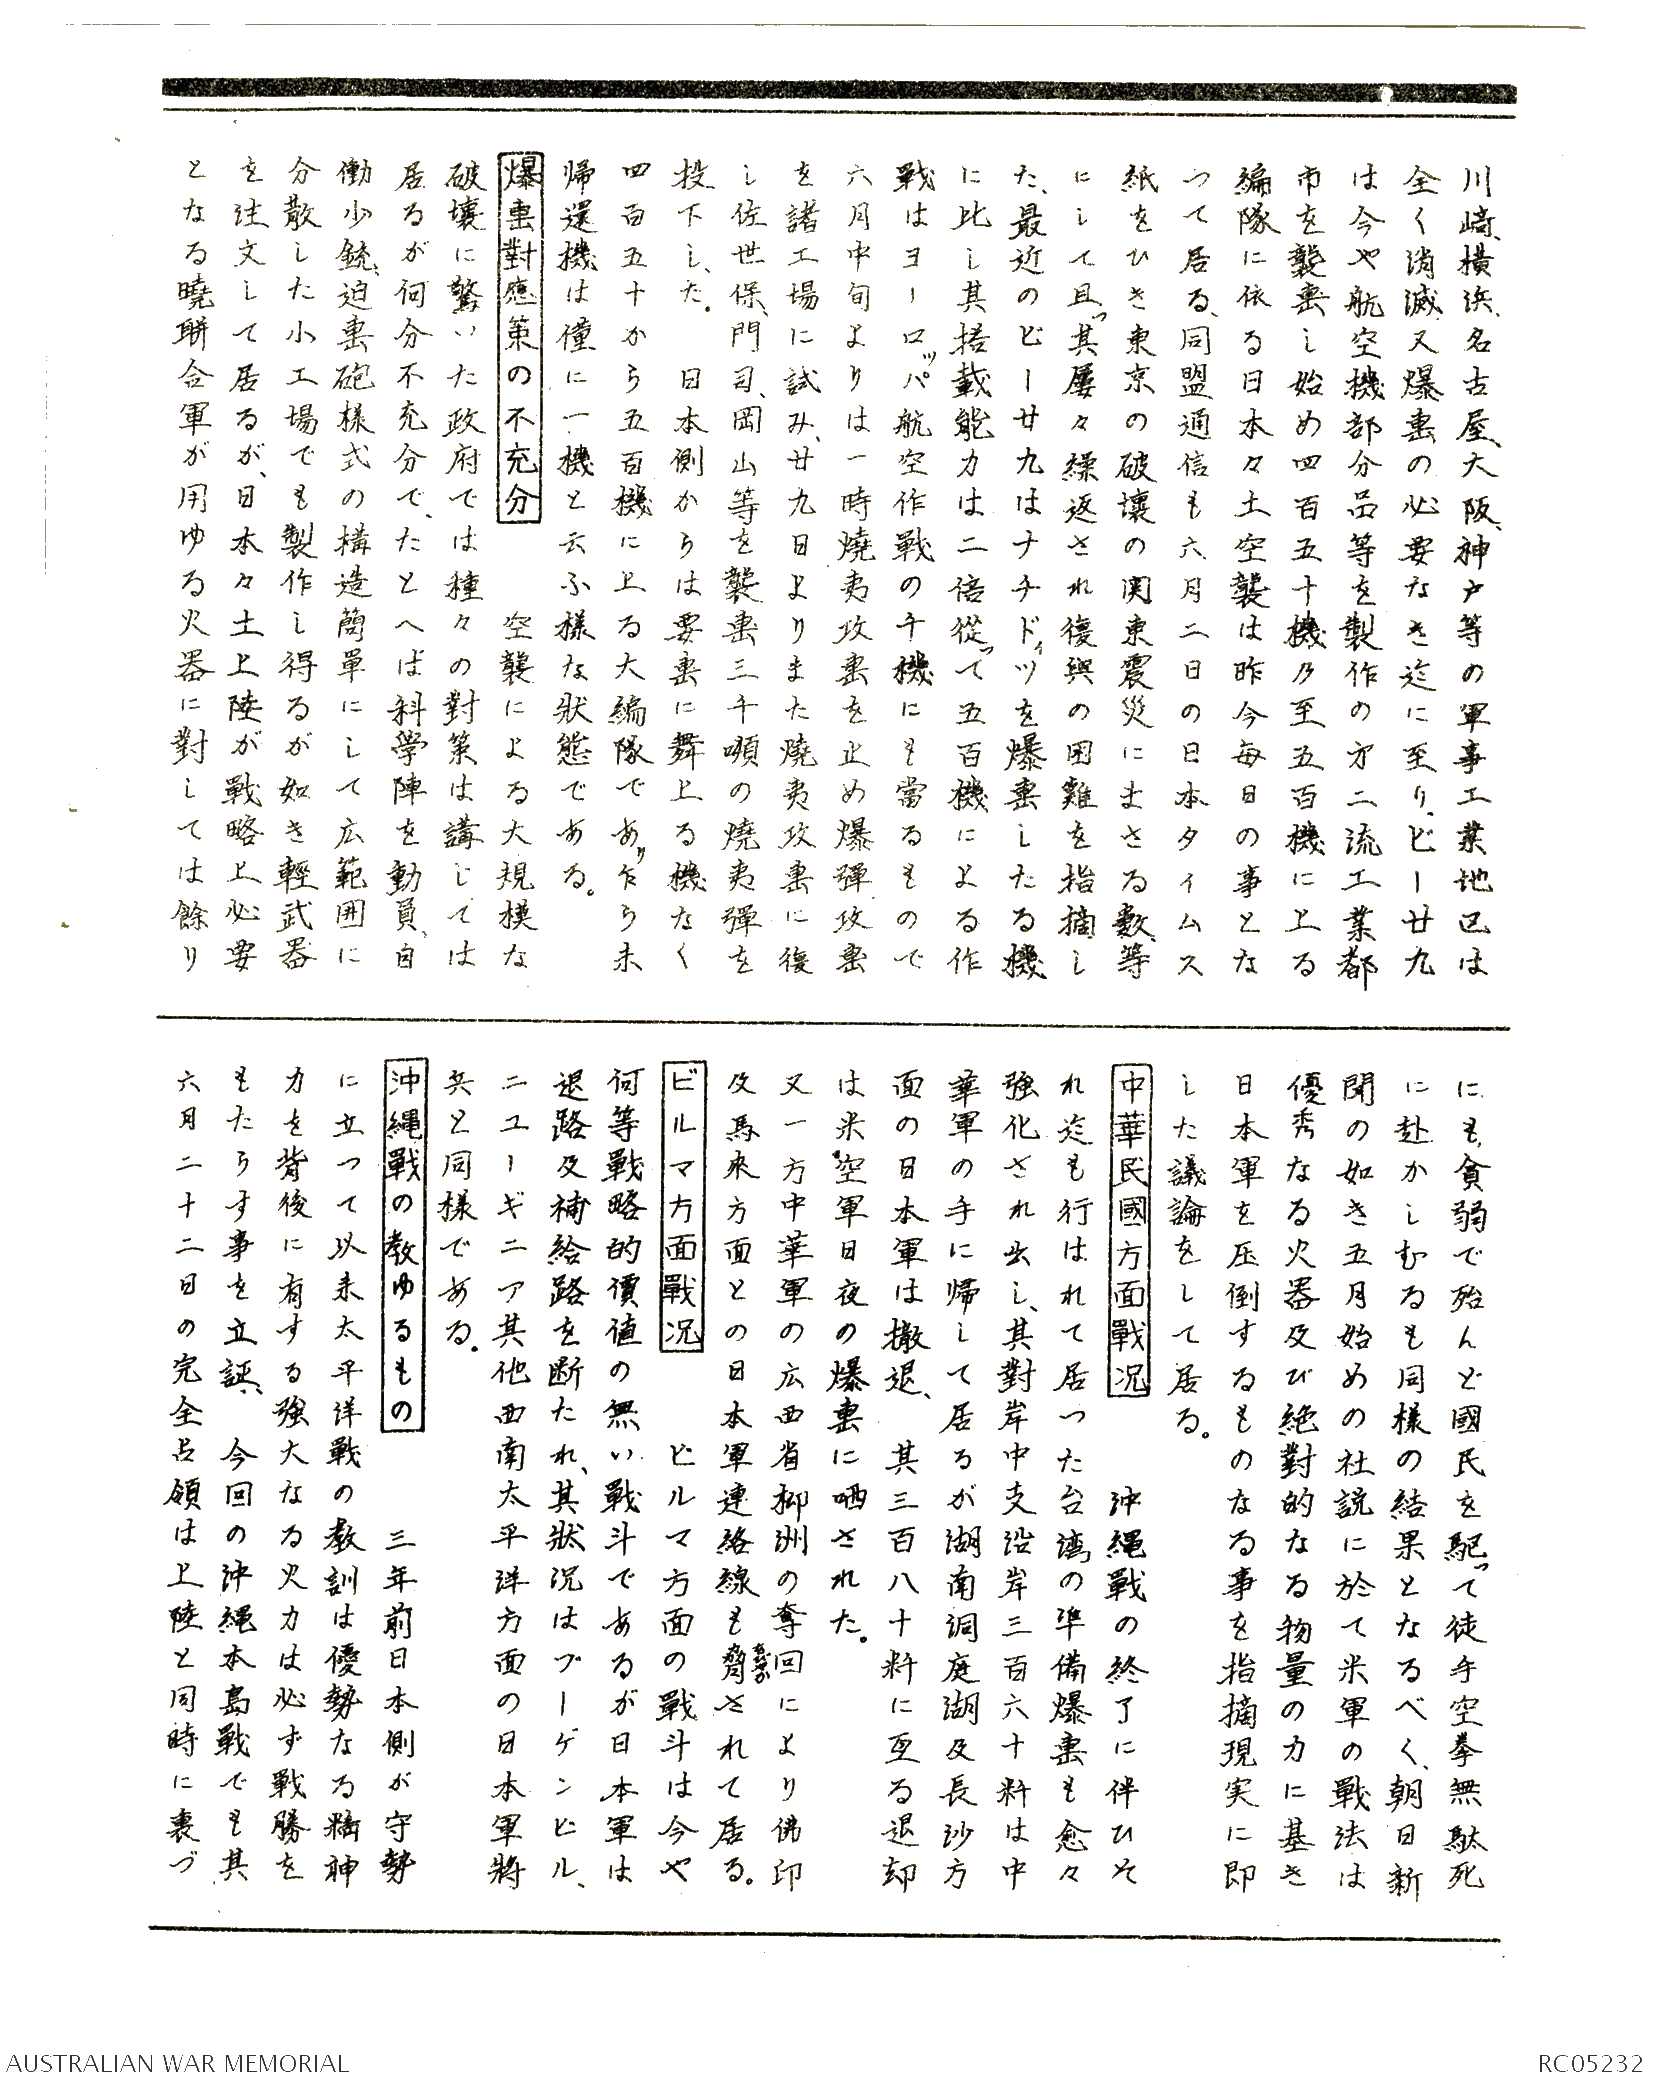 川崎、横浜、名古屋、大阪、神戸等の軍事工業地区は
全く消滅又爆撃の必要なき迄に至り、ビー廿九
は今や航空機部分品等を製作の才二流工業都
市を襲撃し始め四百五十機乃至五百機に上る
編隊に依る日本々土空襲は昨今毎日の事とな
つて居る、同盟通信も六月二日の日本タイムス
紙をひき東京の破壊の関東震災にまさる数等
にして且つ其屡々繰返され復興の困難を指摘し
た、最近のビー廿九はナチドイツを爆撃したる機
に比し其搭載能力は二倍従つて五百機による作
戦はヨーロッパ航空作戦の千機にも當るもので
六月中旬よりは一時焼夷攻撃を止め爆弾攻撃
を諸工場に試み、廿九日よりまた焼夷攻撃に復
し佐世保、門司、岡山等を襲撃三千噸の焼夷弾を
投下した。　日本側からは要撃に舞上る機なく
四百五十から五百機に上る大編隊であり乍ら未
帰還機は僅に一機と云ふ様な状態である。
爆撃對應策の不充分　空襲による大規模な
破壊に驚いた政府では種々の對策は講じては
居るが何分不充分で、たとへば科學陣を動員、自
働少銃、迫撃砲様式の構造簡單にして広範囲に
分散した小工場でも製作し得るが如き軽武器
を注文して居るが、日本々土上陸が戦略上必要
となる曉聯合軍が用ゆる火器に對しては餘り
にも貧弱で殆んど國民を駆つて徒手空拳無駄死
に赴かしむるも同様の結果となるべく、朝日新
聞の如き五月始めの社説に於て米軍の戦法は
優秀なる火器及び絶對的なる物量の力に基き
日本軍を圧倒するものなる事を指摘現実に即
した議論をして居る。
中華民國方面戰況　沖縄戦の終了に伴ひそ
れ迄も行はれて居つた台湾の準備爆撃も愈々
強化され出し、其對岸中支沿岸三百六十粁は中
華軍の手に帰して居るが湖南洞庭湖及長沙方
面の日本軍は撤退、其三百八十粁に亙る退却
は米空軍日夜の爆撃に晒された。
又一方中華軍の広西省柳洲の奪回により佛印
及馬来方面との日本軍連絡線も脅されて居る。
ビルマ方面戰況　ビルマ方面の戦斗は今や
何等戦略的價値の無い戦斗であるが日本軍は
退路及補給路を断たれ、其狀況はブーゲンビル、
ニユーギニア其他西南太平洋方面の日本軍將
兵と同様である。
沖縄戦の教ゆるもの　三年前日本側が守勢
に立つて以来太平洋戦の教訓は優勢なる精神
力を背後に有する強大なる火力は必ず戦勝を
もたらす事を立証、　今回の沖縄本島戦でも其
六月二十二日の完全占領は上陸と同時に裏づ
AUSTRALIAN WAR MEMORIAL
RC05232